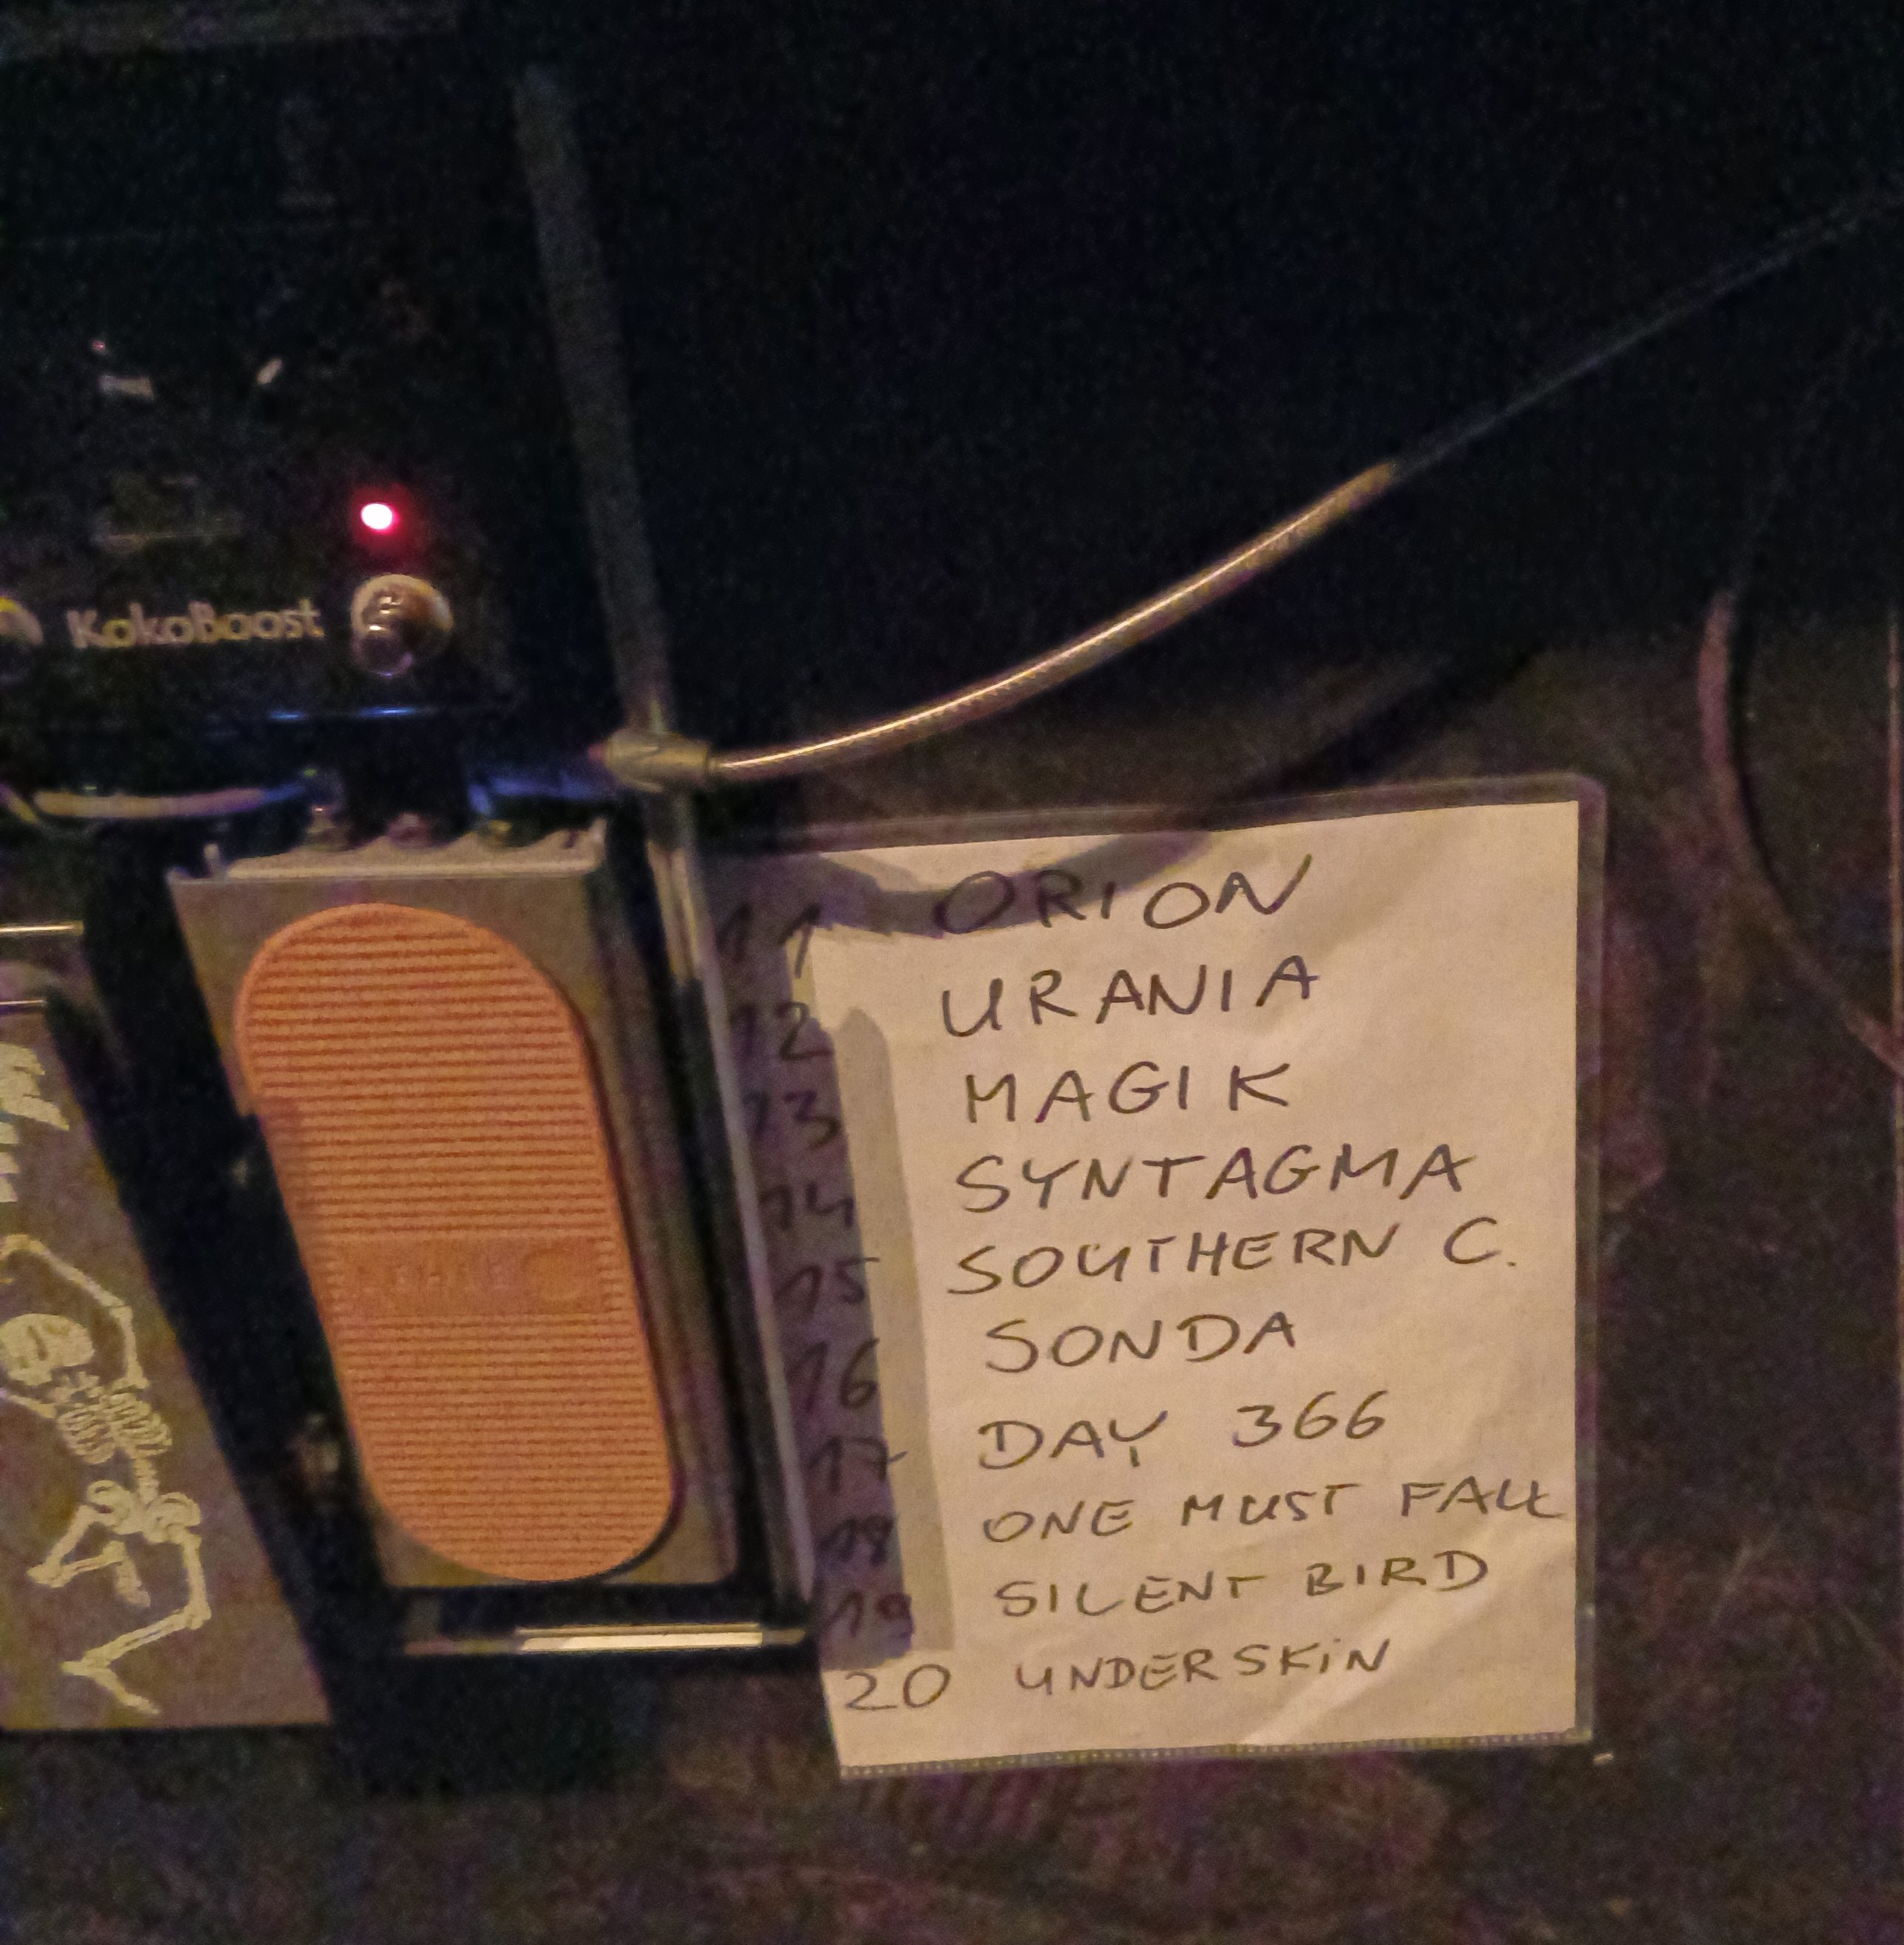 KokoBoost
11 ORION
12 URANIA
13 MAGIK
14 SYNTAGMA
15 SOUTHERN C.
16 SONDA
17 DAY 366
18 ONE MUST FALL
19 SILENT BIRD
20 UNDERSKIN